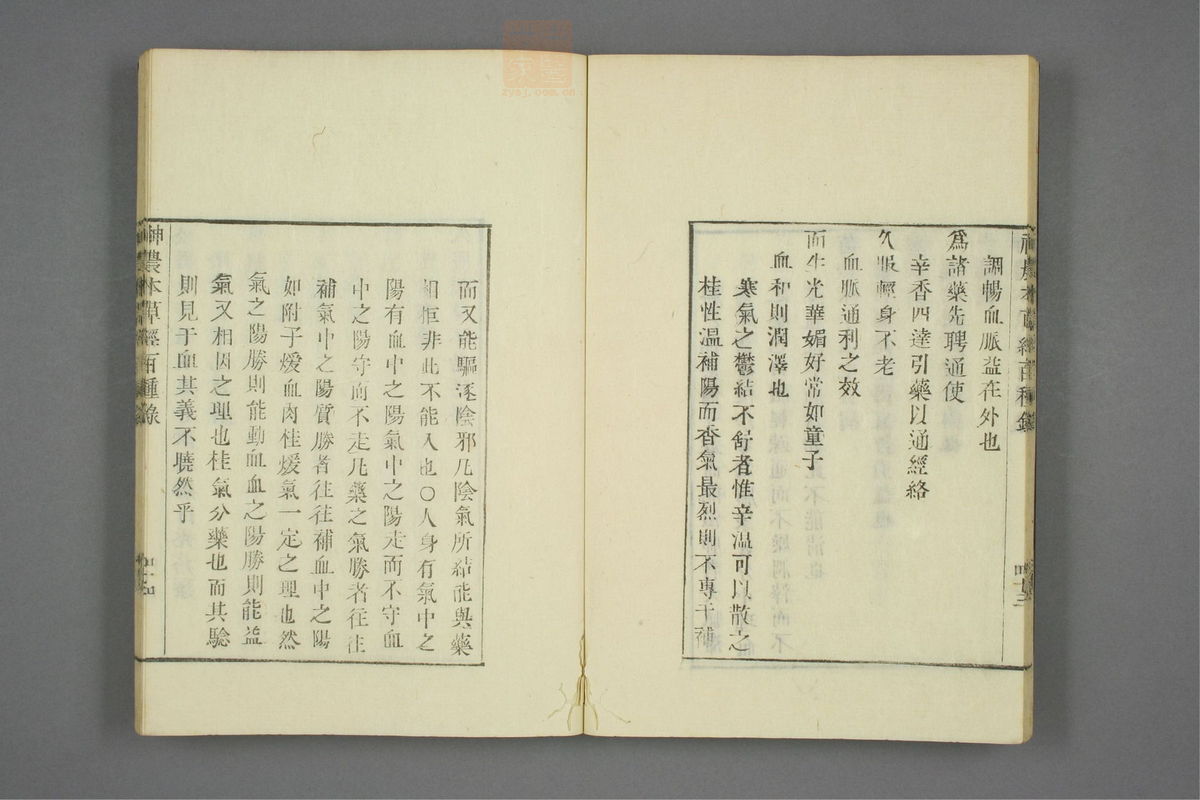 神農本草經百種錄
四十三
調暢血脈益在外也
爲諸藥先聘通使
辛香四達引藥以通經絡
久服輕身不老
血脈通利之效
面生光華媚好常如童子
血和則潤澤也
寒氣之鬱結不舒者惟辛溫可以散之
桂性溫補陽而香氣最烈則不專于補
而又能驅逐陰邪凡陰氣所結能與藥
相拒非此不能入也○人身有氣中之
陽有血中之陽氣中之陽走而不守血
中之陽守而不走凡藥之氣勝者往往
補氣中之陽質勝者往往補血中之陽
如附子煖血肉桂煖氣一定之理也然
氣之陽勝則能動血血之陽勝則能益
氣又相因之理也桂氣分藥也而其驗
則見于血其義不曉然乎
神農本草經百種錄
四十四
zysj.com.cn